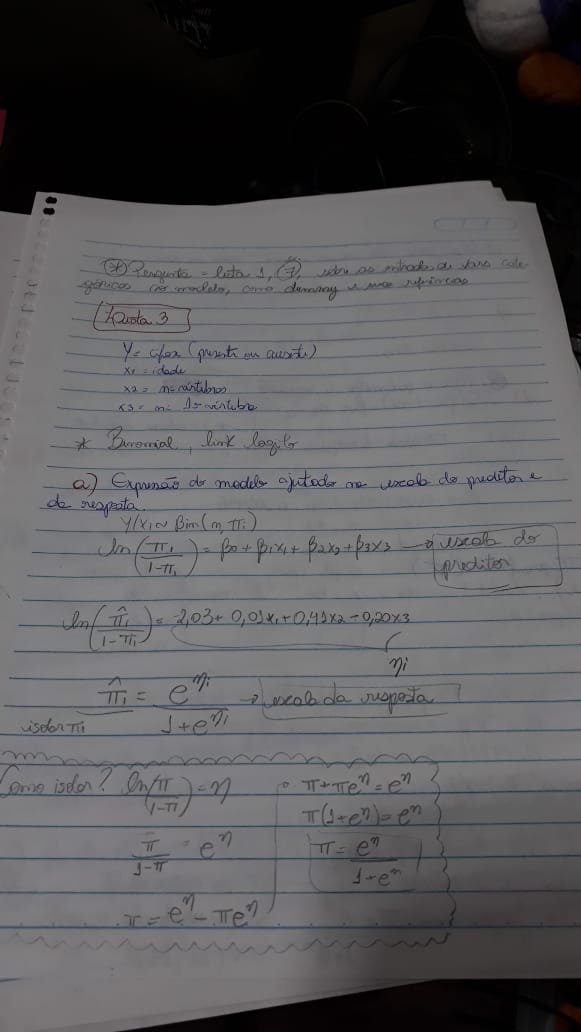 * Pergunta = lista 1, 7, sobre as entrada de vars cate-
góricas no modelo, como dummy e suas
Lista 3
Y = cifose (presente ou ausente)
x1 = idade
x2 = nº vértebras
x3 = nº 1ª vértebra
* Binomial, link logito
a) Expressão do modelo ajustado na escala do preditor e
da resposta.
Y/Xi ~ Bin(n, πi)
ln(πi/1-πi) = β0 + β1x1 + β2x2 + β3x3 → escala do
preditor
ln(π̂i/1-πi) = -2,03 + 0,01x1 + 0,41x2 - 0,20x3
ηi
π̂i = e^ηi/1+e^ηi → escala da resposta
isolar πi
Como isolar? ln(π/1-π) = η
π/1-π = e^η
π = e^η - πe^η
π + πe^η = e^η
π(1+e^η) = e^η
π = e^η/1+e^η